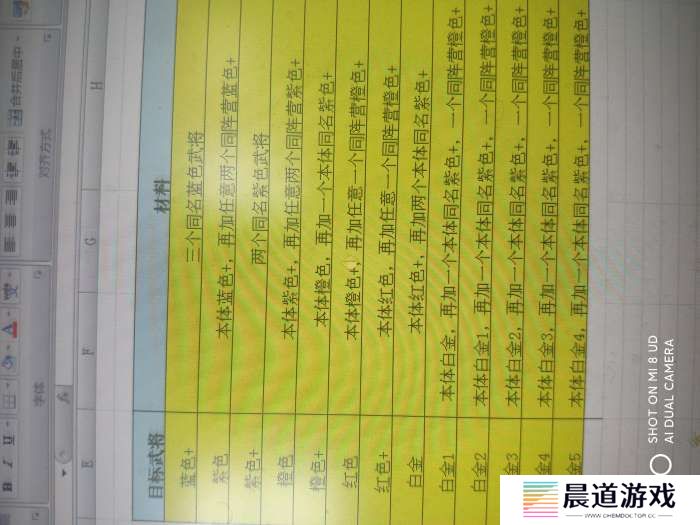 合并后居中
B I U A 变
字体 对齐方式
fx
E F G H
目标武将 材料
蓝色+ 三个同名蓝色武将
紫色 本体蓝色+，再加任意两个同阵营蓝色+
紫色+ 两个同名紫色武将
橙色 本体紫色+，再加任意两个同阵营紫色+
橙色+ 本体橙色，再加一个本体同名紫色+
红色 本体橙色+，再加任意一个同阵营橙色+
红色+ 本体红色，再加任意一个同阵营橙色+
白金 本体红色+，再加两个本体同名紫色+
白金1 本体白金，再加一个本体同名紫色+，一个同阵营橙色+
白金2 本体白金1，再加一个本体同名紫色+，一个同阵营橙色+
金3 本体白金2，再加一个本体同名紫色+，一个同阵营橙色+
金4 本体白金3，再加一个本体同名紫色+，一个同阵营橙色+
金5 本体白金4，再加一个本体同名紫色+，一个同阵营橙色+
SHOT ON MI 8 UD
AI DUAL CAMERA
晨道游戏
WWW.CHEMDOCTOR.CC